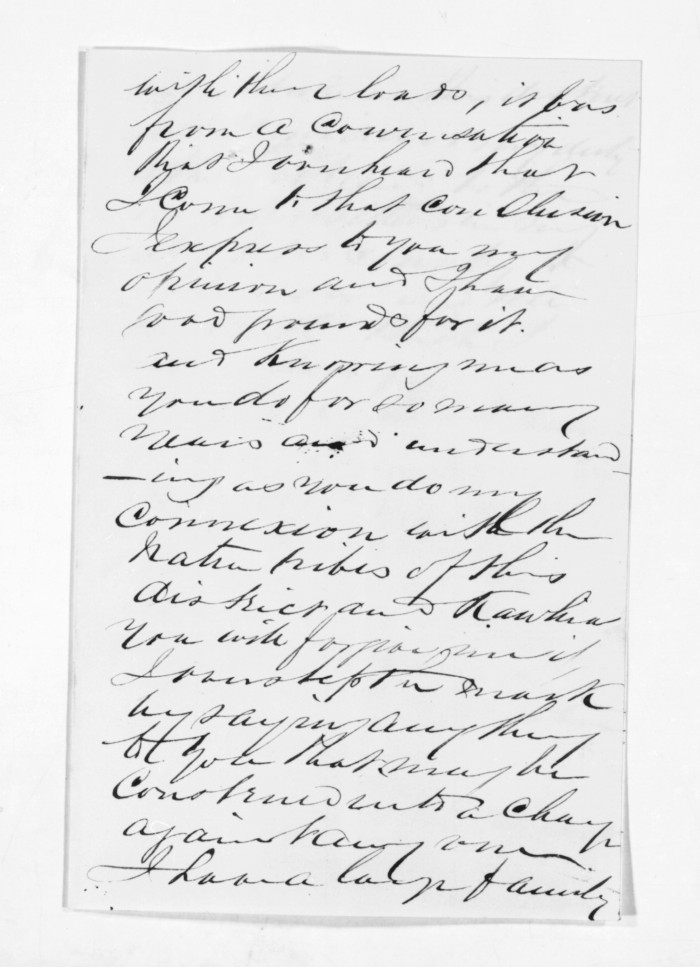 with their loads, it was
from a conversation
that I overheard that
I come to that conclusion
I express to you my
opinion and I have
good grounds for it.
and Knowing me as
you do for so many
years and understand
-ing as you do my
Connexion with the
Native tribes of this
district and Kawhia
You will forgive me if
I overstep the mark
by saying anything
to you that may be
Construed into a charge
against any one
I have a large family